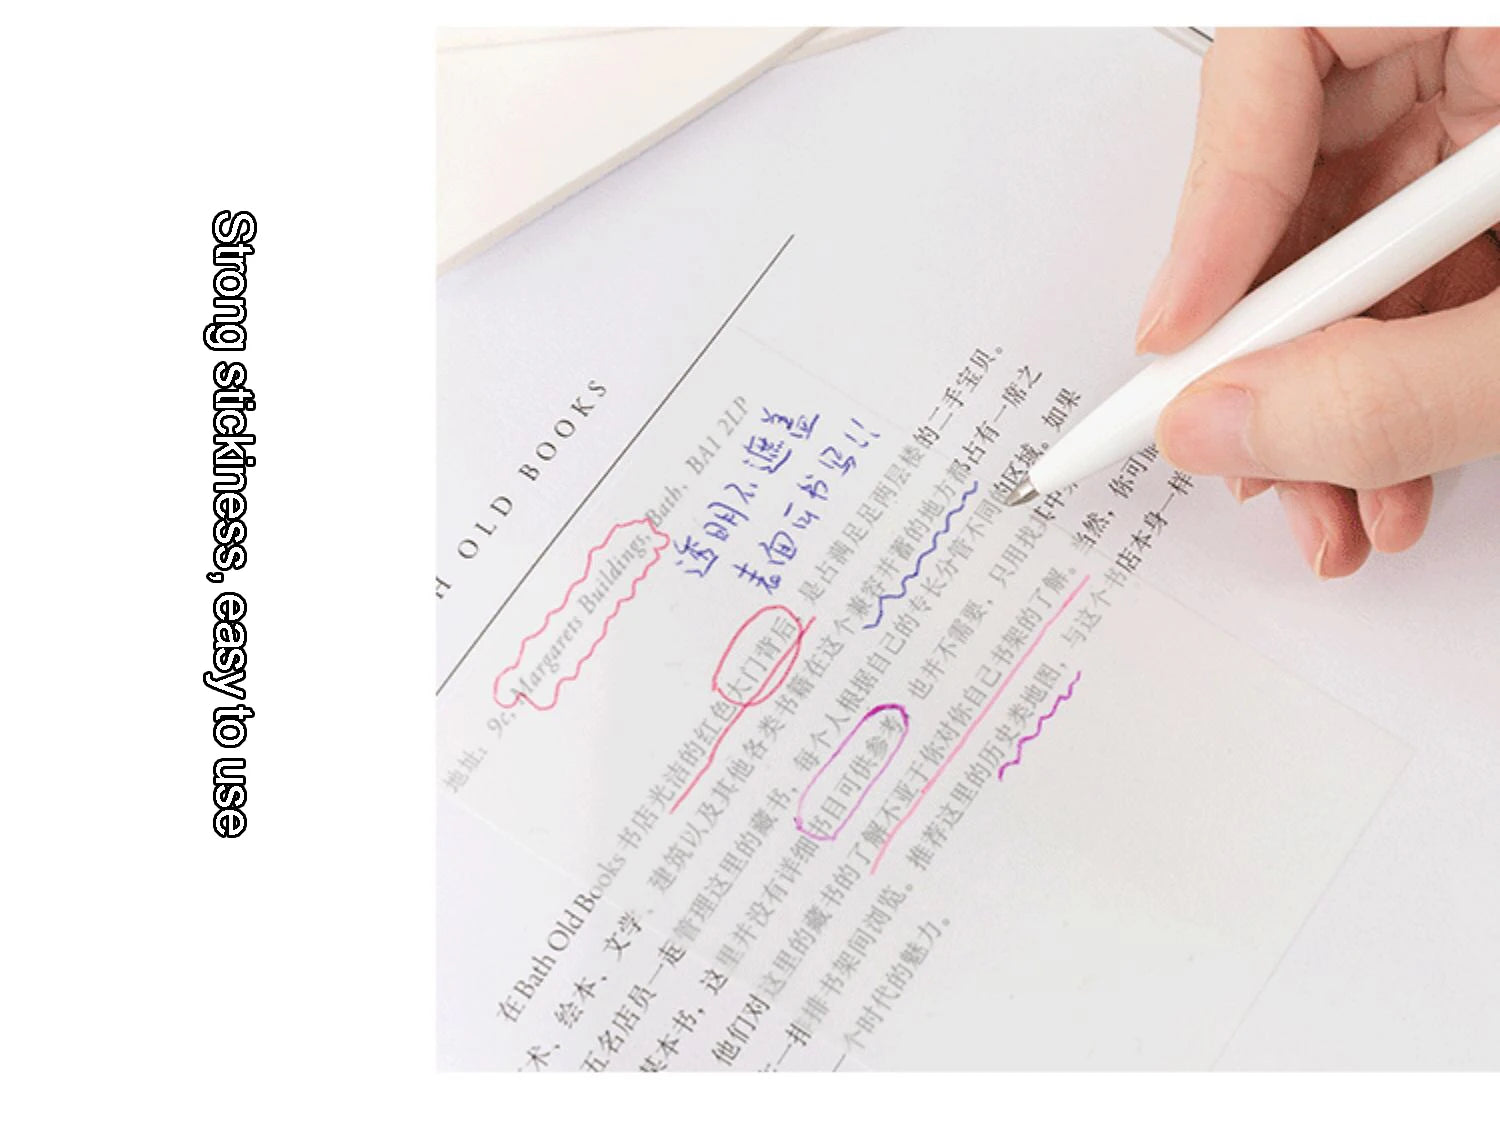 Strong stickiness, easy to use
H OLD BOOKS
地址：9c, Margarets Buildings, Bath, BA1 2LP
透明不遮盖
表面可书写!!
在Bath Old Books 书店光洁的红色大门背后，是占满足足两层楼的二手宝贝。
术、绘本、文学、建筑以及其他各类书籍在这个兼容并蓄的地方都占有一席之
五名店员一起管理这里的藏书，每个人根据自己的专长分管不同的区域。如果
某本书，这里并没有详细书目可供参考，也并不需要，只用找其中
他们对这里的藏书的了解不亚于你对你自己书架的了解。当然，你可
一排排书架间浏览。推荐这里的历史类地图，与这个书店本身一样
一个时代的魅力。